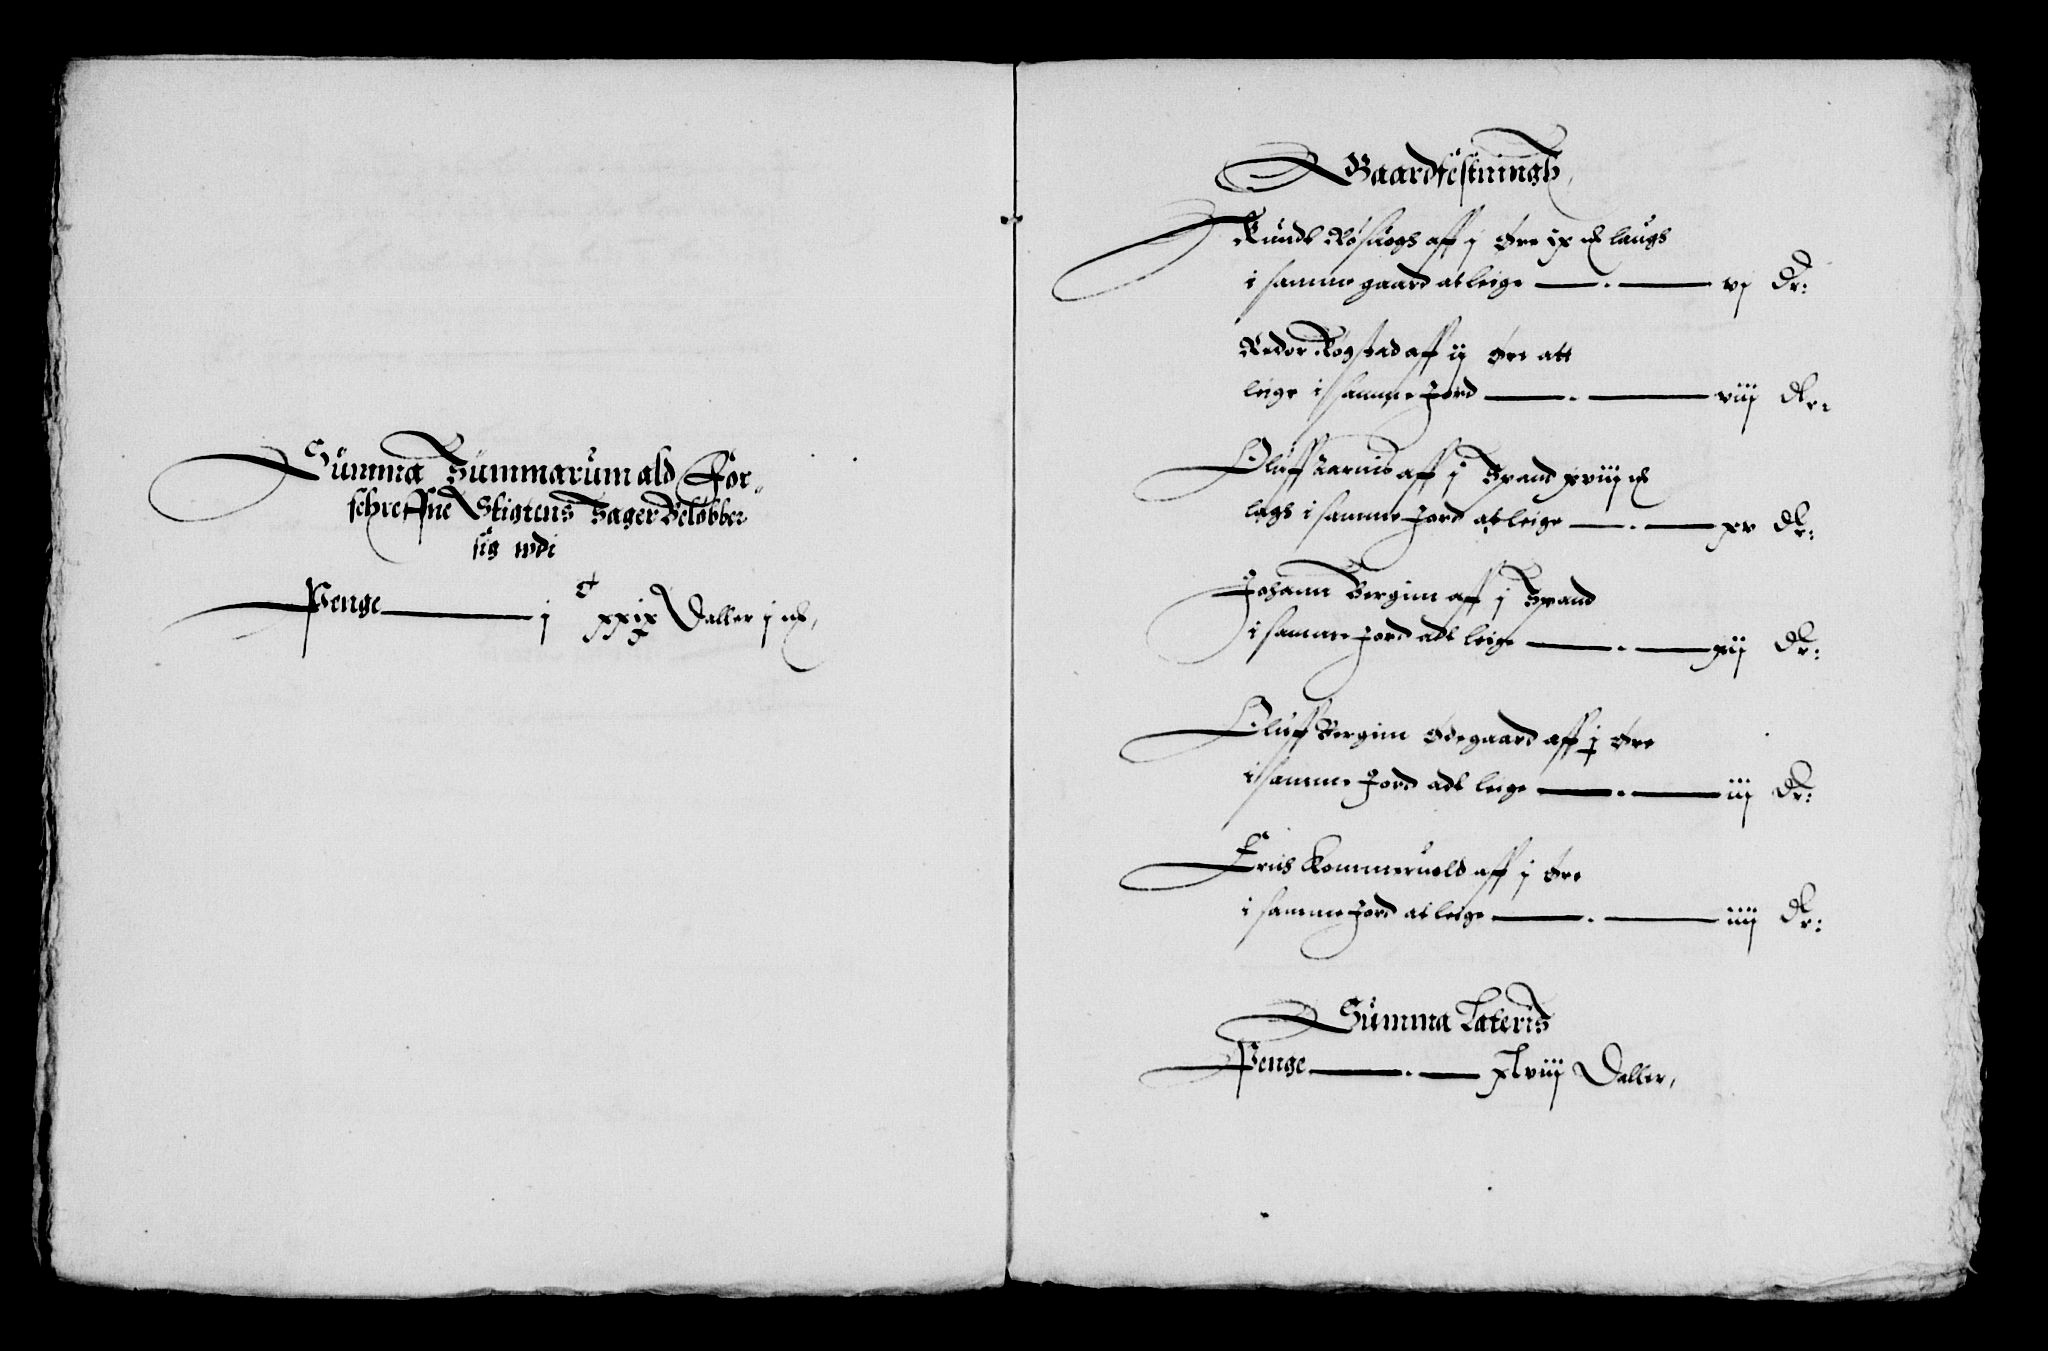 Summa Summarum ald For-
schreffne Stigtens Sager Beløbber
sig wdi
Penge j c xxix Daller j mk,
Gaardfestningh,
Knudt aff j øre ix mk laugs
i samme gaard at leige vj Dr:
Redor Rogstad aff ij øre att
leige i samme Jord viij Dr:
Oluff aff j Spand xviij mk
lags i samme Jord at leige xv Dr:
Johann Bergim aff j Spand
i samme Jord adt leige xij Dr:
Oluff Bergim ødegaard aff j øre
i samme Jord adt leige iij Dr:
Erich Kommeruold aff j øre
i samme Jord at leige iiij Dr:
Summa Lateris
Penge xlviij Daller,